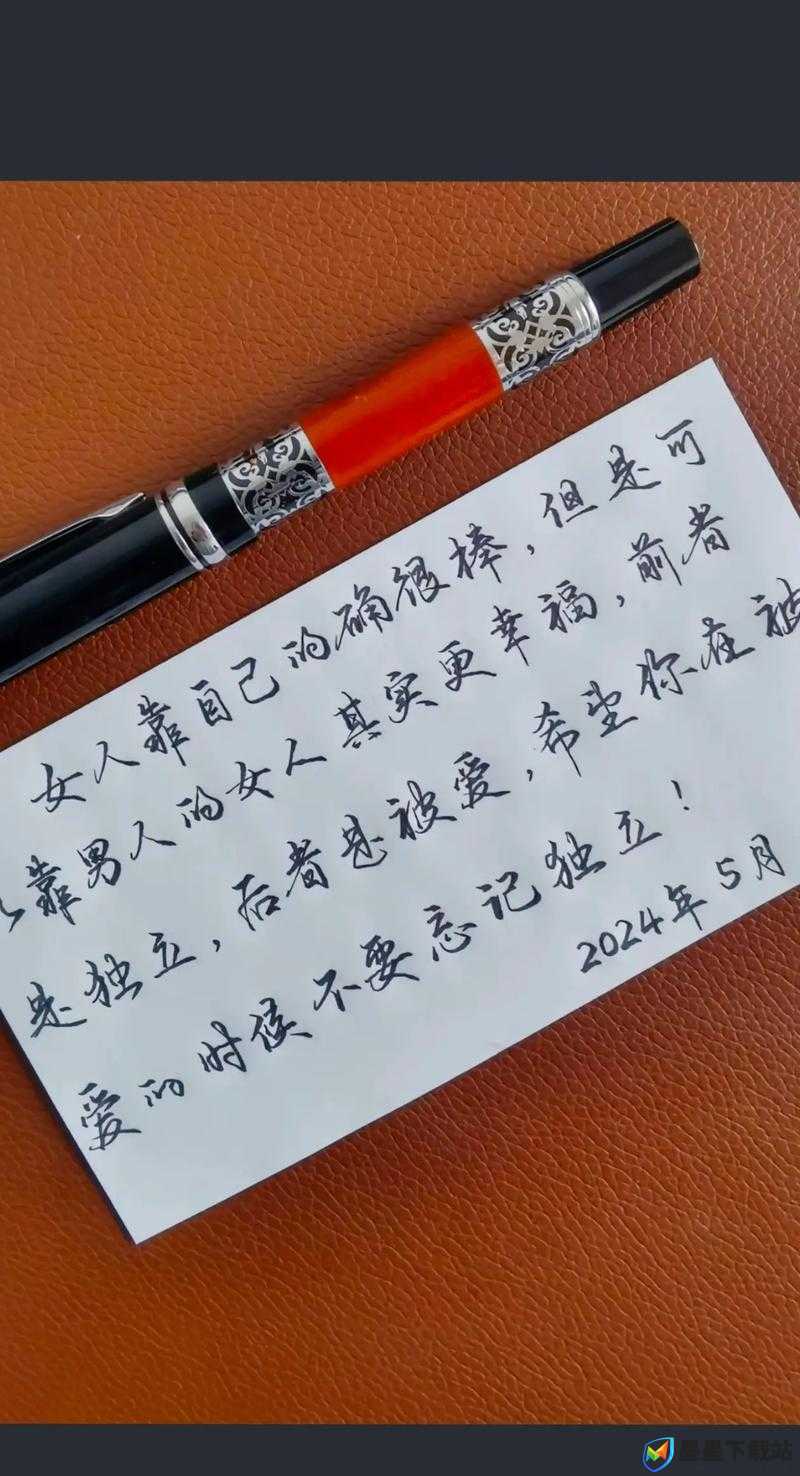 女人靠自己的确很棒，但是可
以靠男人的女人其实更幸福，前者
是独立，后者是被爱，希望你在被
爱的时候不要忘记独立！
2024年5月
星星下载站